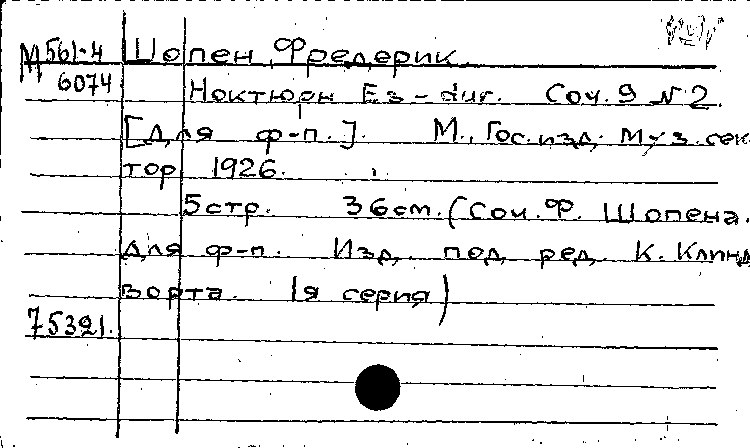 М 561-4 Шопен, Фредерик.
6074
Ноктюрн Es-dur. Соч. 9 № 2.
[Для ф-п.]. М., Гос. изд. Муз. сек-
тор 1926.
5 стр. 36 см. (Соч. Ф. Шопена.
Для ф-п. Изд. под ред. К. Клинд
ворта. 1я серия)
75321.